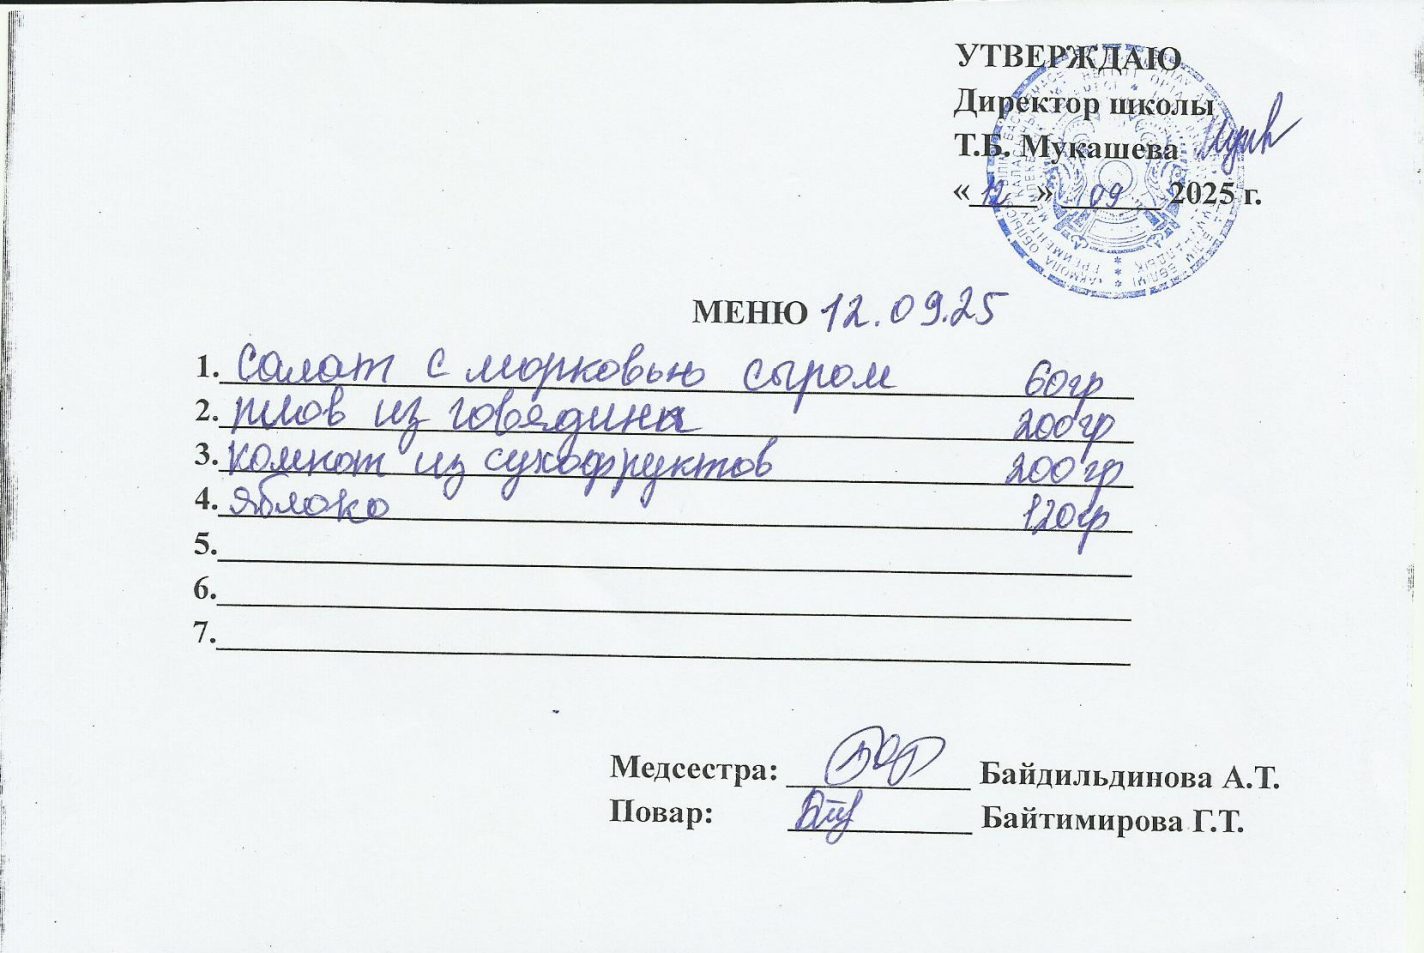 УТВЕРЖДАЮ
Директор школы
Т.Б. Мукашева
«12» 09 2025 г.
МЕНЮ 12.09.25
1. Салат с морковью сыром 60гр
2. плов из говядины 200гр
3. компот из сухофруктов 200гр
4. яблоко 120гр
5.
6.
7.
Медсестра: Байдильдинова А.Т.
Повар: Байтимирова Г.Т.